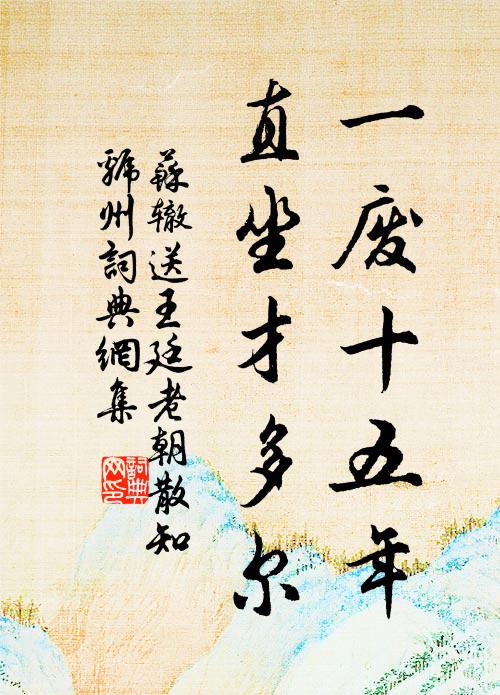 一废十五年
直坐才多尔
蘇辙送王廷老朝散知
虢州詞典網集
詞典
网印